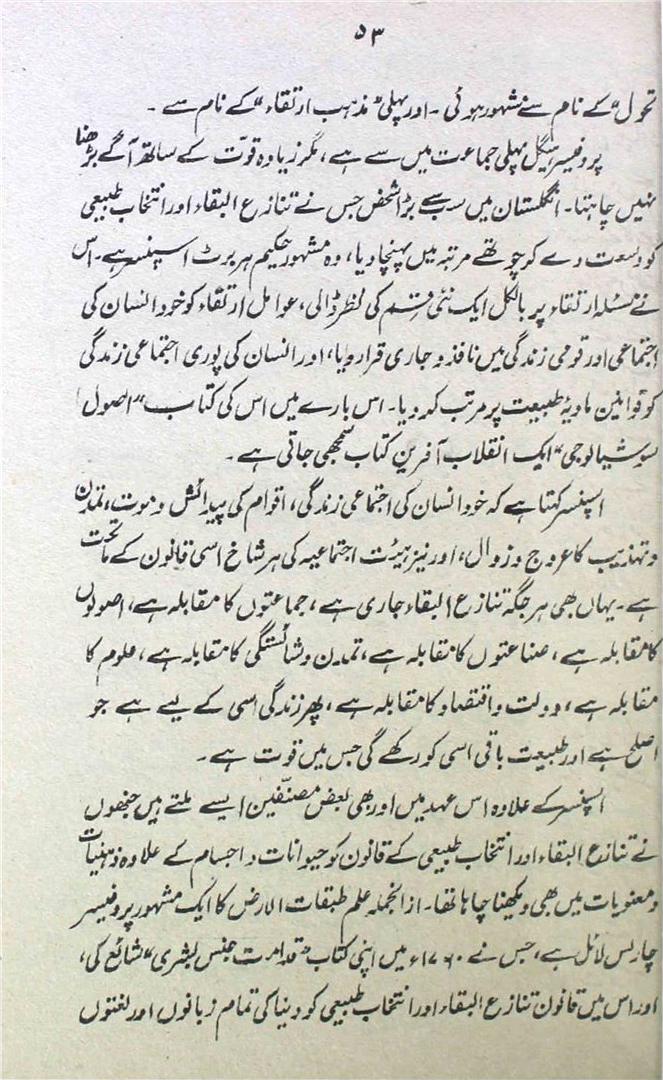 ۵۳
تحول" کے نام سے مشہور ہوئی ۔ اور پہلی "مذہب ارتقاء" کے نام سے ۔
پروفیسر ہیگل پہلی جماعت میں سے ہے، مگر زیادہ قوّت کے ساتھ آگے بڑھنا
نہیں چاہتا۔ انگلستان میں سب سے بڑا شخص جس نے تنازع البقاء اور انتخاب طبیعی
کو وسعت دے کر چوتھے مرتبہ میں پہنچا دیا، وہ مشہور حکیم ہربرٹ اسپنسر ہے۔ اس
نے مسئلہ ارتقاء پر بالکل ایک نئی قسم کی نظر ڈالی، عوامل ارتقاء کو خود انسان کی
اجتماعی اور قومی زندگی میں نافذ و جاری قرار دیا، اور انسان کی پوری اجتماعی زندگی
کو قوانین مادیۂ طبیعت پر مرتب کر دیا۔ اس بارے میں اس کی کتاب "اصول
سوشیالوجی" ایک انقلاب آفرین کتاب سمجھی جاتی ہے ۔
اسپنسر کہتا ہے کہ خود انسان کی اجتماعی زندگی، اقوام کی پیدائش و موت، تمدن
و تہذیب کا عروج و زوال، اور نیز ہیئت اجتماعیہ کی ہر شاخ اسی قانون کے ماتحت
ہے ۔ یہاں بھی ہر جگہ تنازع البقاء جاری ہے، جماعتوں کا مقابلہ ہے، اصولوں
کا مقابلہ ہے، صناعتوں کا مقابلہ ہے، تمدن و شائستگی کا مقابلہ ہے، علوم کا
مقابلہ ہے، دولت و اقتصاد کا مقابلہ ہے، پھر زندگی اسی کے لیے ہے جو
اصلح ہے اور طبیعت باقی اسی کو رکھے گی جس میں قوت ہے ۔
اسپنسر کے علاوہ اس عہد میں اور بھی بعض مصنّفین ایسے ملتے ہیں جنھوں
نے تنازع البقاء اور انتخاب طبیعی کے قانون کو حیوانات و اجسام کے علاوہ ذہنیات
و معنویات میں بھی دیکھنا چاہا تھا۔ از انجملہ علم طبقات الارض کا ایک مشہور پروفیسر
چارلس لائل ہے، جس نے ۱۷۶۰ء میں اپنی کتاب "قدامت جنس بشری" شائع کی،
اور اس میں قانون تنازع البقاء اور انتخاب طبیعی کو دنیا کی تمام زبانوں اور لغتوں